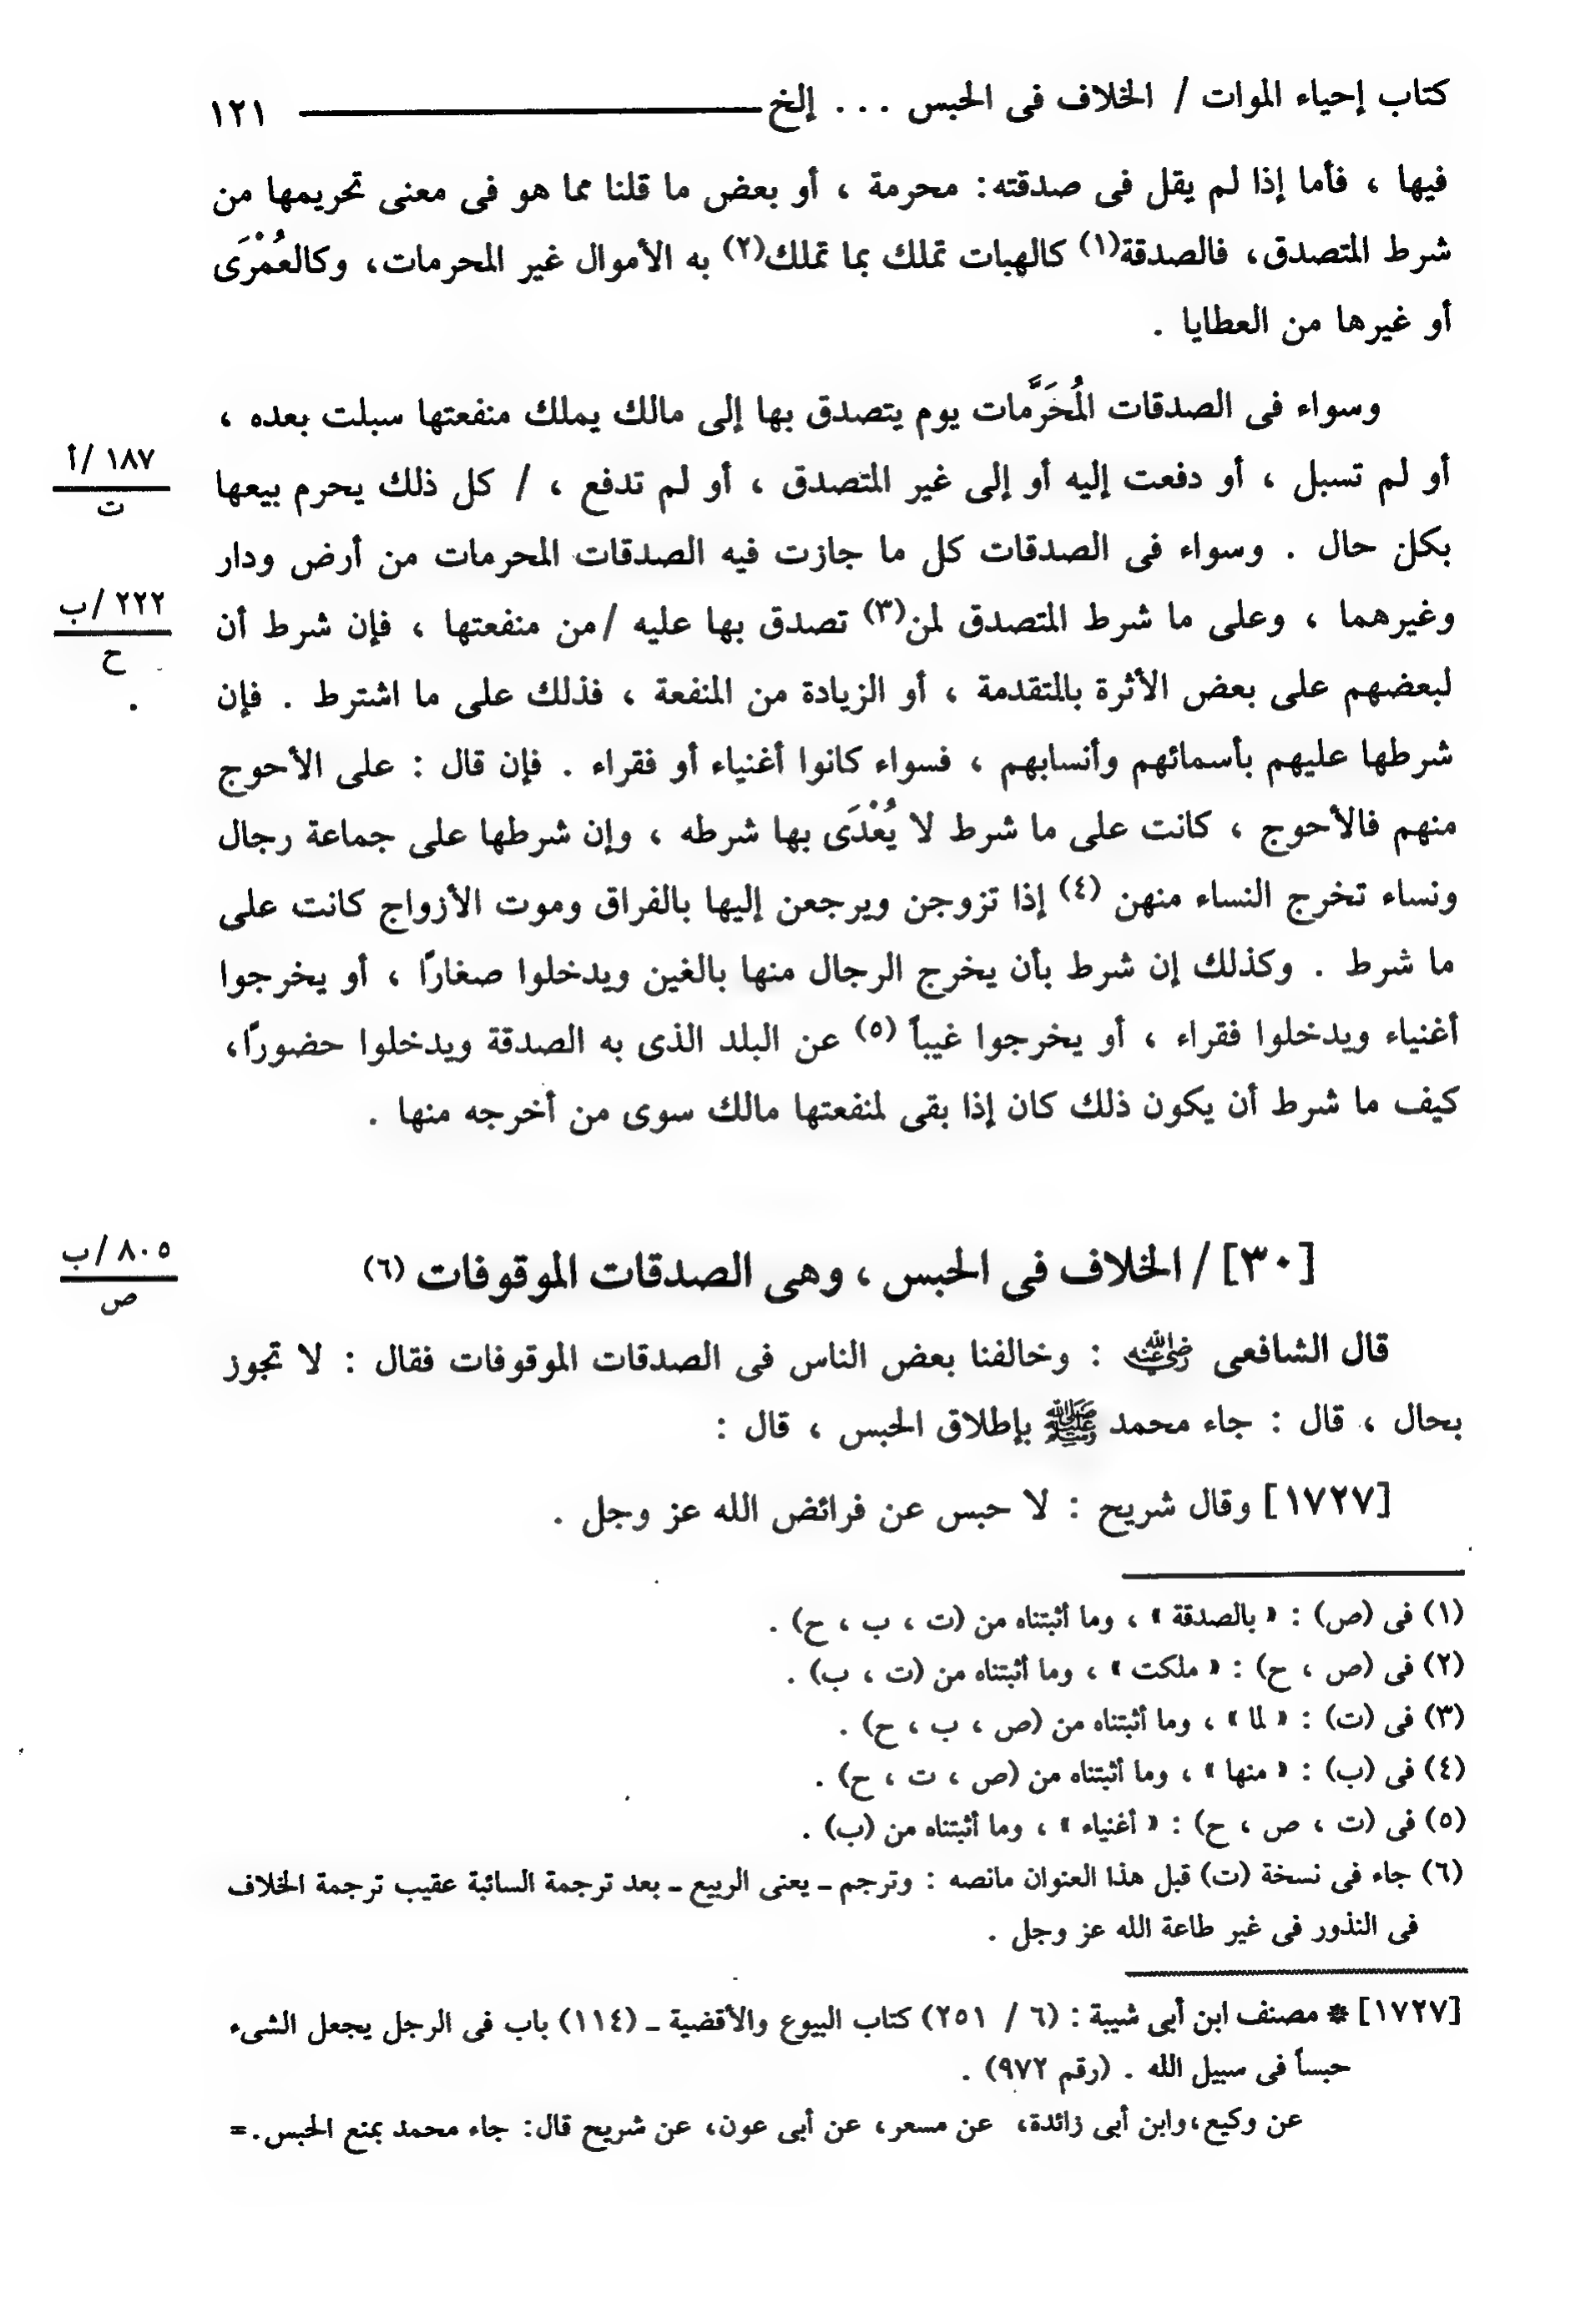 كتاب إحياء الموات / الخلاف فى الحبس . . . إلخ ١٢١
فيها ، فأما إذا لم يقل فى صدقته: محرمة ، أو بعض ما قلنا مما هو فى معنى تحريمها من
شرط المتصدق، فالصدقة(١) كالهبات تملك بما تملك(٢) به الأموال غير المحرمات، وكالعُمْرَى
أو غيرها من العطايا .
وسواء فى الصدقات المُحَرَّمات يوم يتصدق بها إلى مالك يملك منفعتها سبلت بعده ،
أو لم تسبل ، أو دفعت إليه أو إلى غير المتصدق ، أو لم تدفع ، / كل ذلك يحرم بيعها
١٨٧ /أ
ت
بكل حال . وسواء فى الصدقات كل ما جازت فيه الصدقات المحرمات من أرض ودار
وغيرهما ، وعلى ما شرط المتصدق لمن(٣) تصدق بها عليه /من منفعتها ، فإن شرط أن
٢٢٢ /ب
ح
لبعضهم على بعض الأثرة بالمتقدمة ، أو الزيادة من المنفعة ، فذلك على ما اشترط . فإن
شرطها عليهم بأسمائهم وأنسابهم ، فسواء كانوا أغنياء أو فقراء . فإن قال : على الأحوج
منهم فالأحوج ، كانت على ما شرط لا يُعْدَى بها شرطه ، وإن شرطها على جماعة رجال
ونساء تخرج النساء منهن (٤) إذا تزوجن ويرجعن إليها بالفراق وموت الأزواج كانت على
ما شرط . وكذلك إن شرط بأن يخرج الرجال منها بالغين ويدخلوا صغارًا ، أو يخرجوا
أغنياء ويدخلوا فقراء ، أو يخرجوا غيباً (٥) عن البلد الذى به الصدقة ويدخلوا حضورًا،
كيف ما شرط أن يكون ذلك كان إذا بقى لمنفعتها مالك سوى من أخرجه منها .
[٣٠] / الخلاف فى الحبس ، وهى الصدقات الموقوفات (٦)
٨٠٥ /ب
ص
قال الشافعى رضي الله عنه : وخالفنا بعض الناس فى الصدقات الموقوفات فقال : لا تجوز
بحال ، قال : جاء محمد ﷺ بإطلاق الحبس ، قال :
[١٧٢٧] وقال شريح : لا حبس عن فرائض الله عز وجل .
(١) فى (ص) : « بالصدقة » ، وما أثبتناه من (ت ، ب ، ح) .
(٢) فى (ص ، ح) : « ملكت » ، وما أثبتناه من (ت ، ب) .
(٣) فى (ت) : « لما » ، وما أثبتناه من (ص ، ب ، ح) .
(٤) فى (ب) : « منها » ، وما أثبتناه من (ص ، ت ، ح) .
(٥) فى (ت ، ص ، ح) : « أغنياء » ، وما أثبتناه من (ب) .
(٦) جاء فى نسخة (ت) قبل هذا العنوان مانصه : وترجم ـ يعنى الربيع ـ بعد ترجمة السائبة عقيب ترجمة الخلاف
فى النذور فى غير طاعة الله عز وجل .
[١٧٢٧] * مصنف ابن أبى شيبة : (٦ / ٢٥١) كتاب البيوع والأقضية ـ (١١٤) باب فى الرجل يجعل الشىء
حبساً فى سبيل الله . (رقم ٩٧٢) .
عن وكيع،وابن أبى زائدة، عن مسعر، عن أبى عون، عن شريح قال: جاء محمد بمنع الحبس.=